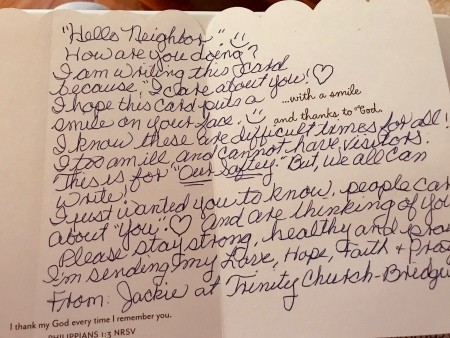 "Hello Neighbor"
How are you doing?
I am writing this card
because "I care about you!
I hope this card puts a
...with a smile
smile on your face!
and thanks to God.
I know these are difficult times for all!
I too am ill and cannot have visitors.
This is for "Our Saftey." But, we all can
write!
I just wanted you to know, people car
about "you". and are thinking of yo
Please stay strong, healthy and pra
I'm sending my Love, Hope, Faith + Pray
From: Jackie at Trinity Church-Bridgew
I thank my God every time I remember you.
PHILIPPIANS 1:3 NRSV